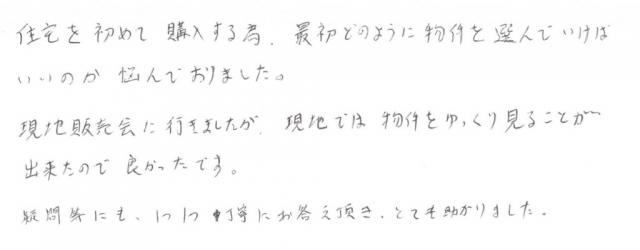 住宅を初めて購入する為、最初どのように物件を選んでいけば
いいのか悩んでおりました。
現地販売会に行きましたが、現地では物件をゆっくり見ることが
出来たので良かったです。
疑問等にも、1つ1つ丁寧にお答え頂き、とても助かりました。